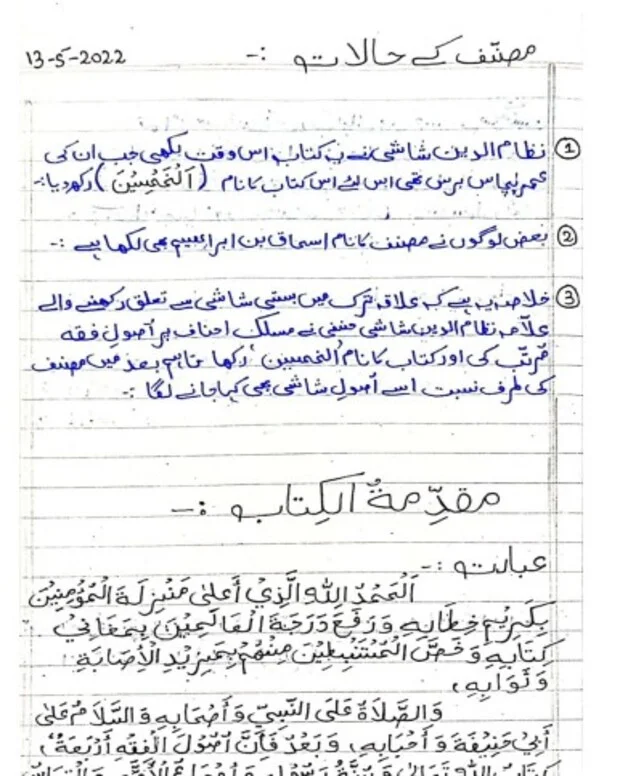 13-5-2022
مصنّف کے حالات :-
① نظام الدین شاشی نے یہ کتاب اس وقت لکھی جب ان کی
عمر پچاس برس تھی اس لئے اس کتاب کا نام (اَلْخَمْسِیْنَ) رکھ دیا :-
② بعض لوگوں نے مصنف کا نام اسحاق بن ابراہیم بھی لکھا ہے :-
③ خلاصہ یہ ہے کہ علاقہ ترک میں بستی شاشی سے تعلق رکھنے والے
علّامہ نظام الدین شاشی حنفی نے مسلک احناف پر اُصولِ فقہ
مُرتّب کی اور کتاب کا نام "الخمسین" رکھا تاہم بعد میں مصنف
کی طرف نسبت اسے اُصولِ شاشی بھی کہا جانے لگا :-
مقدِّمةُ الکِتاب :-
عبارت :-
اَلْحَمْدُ لِلّٰهِ الَّذِيْ أَعْلٰى مَنْزِلَةَ الْمُؤْمِنِيْنَ
بِكَرِيْمِ خِطَابِهِ وَرَفَعَ دَرَجَةَ الْعَالِمِيْنَ بِمَعَانِيْ
كِتَابِهِ وَخَصَّ الْمُسْتَنْبِطِيْنَ مِنْهُمْ بِمَزِيْدِ الْإِصَابَةِ
وَثَوَابِهِ،
وَالصَّلَاةُ عَلَى النَّبِيِّ وَأَصْحَابِهِ وَالسَّلَامُ عَلٰى
أَبِيْ حَنِيْفَةَ وَأَحْبَابِهِ، وَبَعْدُ فَإِنَّ أُصُوْلَ الْفِقْهِ أَرْبَعَةٌ،
كِتَابُ اللّٰهِ تَعَالٰى وَسُنَّةُ رَسُوْلِهِ وَإِجْمَاعُ الْأُمَّةِ وَالْقِيَاسُ